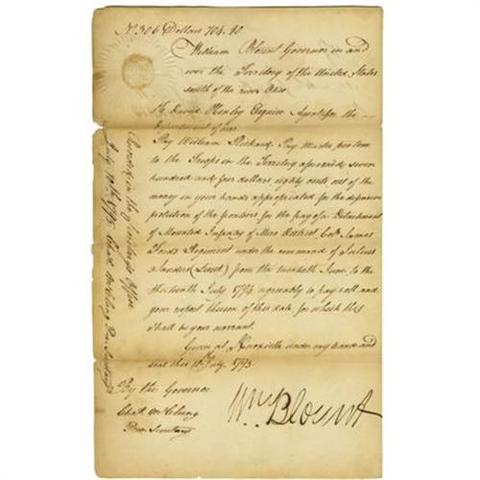 No. 306 Dollars 704.80
William Blount Governor in and
over the Territory of the United States
south of the river Ohio
To David Henley Esquire Agent for the
Department of War
Pay William Rickard Pay Master pro tem
to the Troops in the Territory aforesaid seven
hundred and four dollars eighty cents out of the
money in your hands appropriated for the defensive
protection of the frontiers for the pay of a Detachment
of Mounted Infantry of Mero District Colo. James
Fords Regiment under the command of Julius
Sanders (Lieut) from the twentieth June to the
thirteenth July 1795 agreeably to pay roll and
your report thereon of this date for which this
shall be your warrant.
Given at Knoxville under my hand and
seal this July 1795.
Willm Blount
By the Governor
Chas. McClung
Pro. Secretary
Recorded in the Secretary's Office
July 1795 Chas. McClung Pro. Secretary